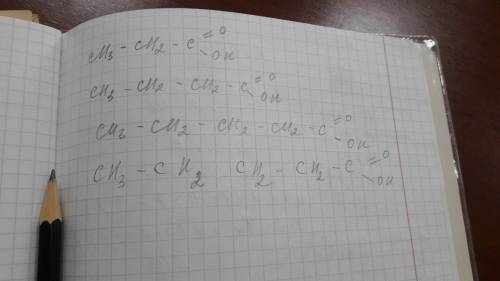 CH3 - CH2 - C =O - OH
CH3 - CH2 - CH2 - C =O - OH
CH3 - CH2 - CH2 - CH2 - C =O - OH
CH3 - CH2 CH2 - CH2 - C =O - OH